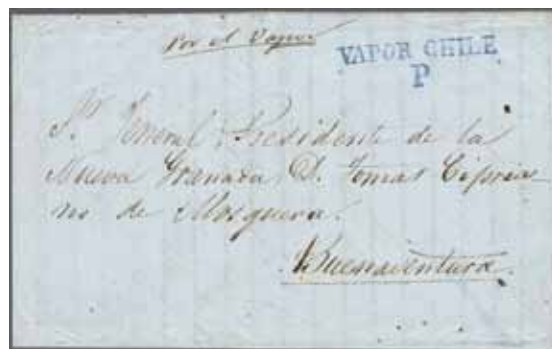 Por el Vapor
VAPOR CHILE
P
Sr. General Presidente de la
Nueva Granada D. Tomas Cipria-
no de Mosquera.
Buenaventura.